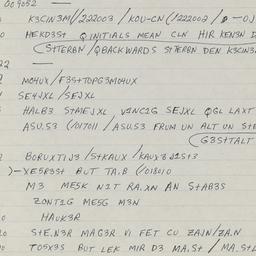 009052 —
K3CIN3M//222003 / KOU-CN (/222002 / 
HEKD3St QINITIALS MEAN CLN HIR KEN3N D
(StTERBN /QBACKWARDS StTERBN DEN K3CIN3
22 —
MO4UX / F3StTOPG3MO4UX
SE4JXL / SEJXL
HALB3 StMEJXL, VINC1G SEJXL QGL LAXT
ASU.53 (/017011 / ASU.53 FRUM UN ALT UN StE
(G3StTALT
BORUXTIJ3 / StKAUX / KAUX3
)-XE5R3St BUT TA.B (/018010
M3 MESK N1T RA.XN AN StAB3S
ZONT1G MESG M3N
HAUK3R
StE.N3R MAG3R VI FET CU ZAIN/ZA.N
TO5X3S BUT LEK MIR D3 MA.St / MA.StL